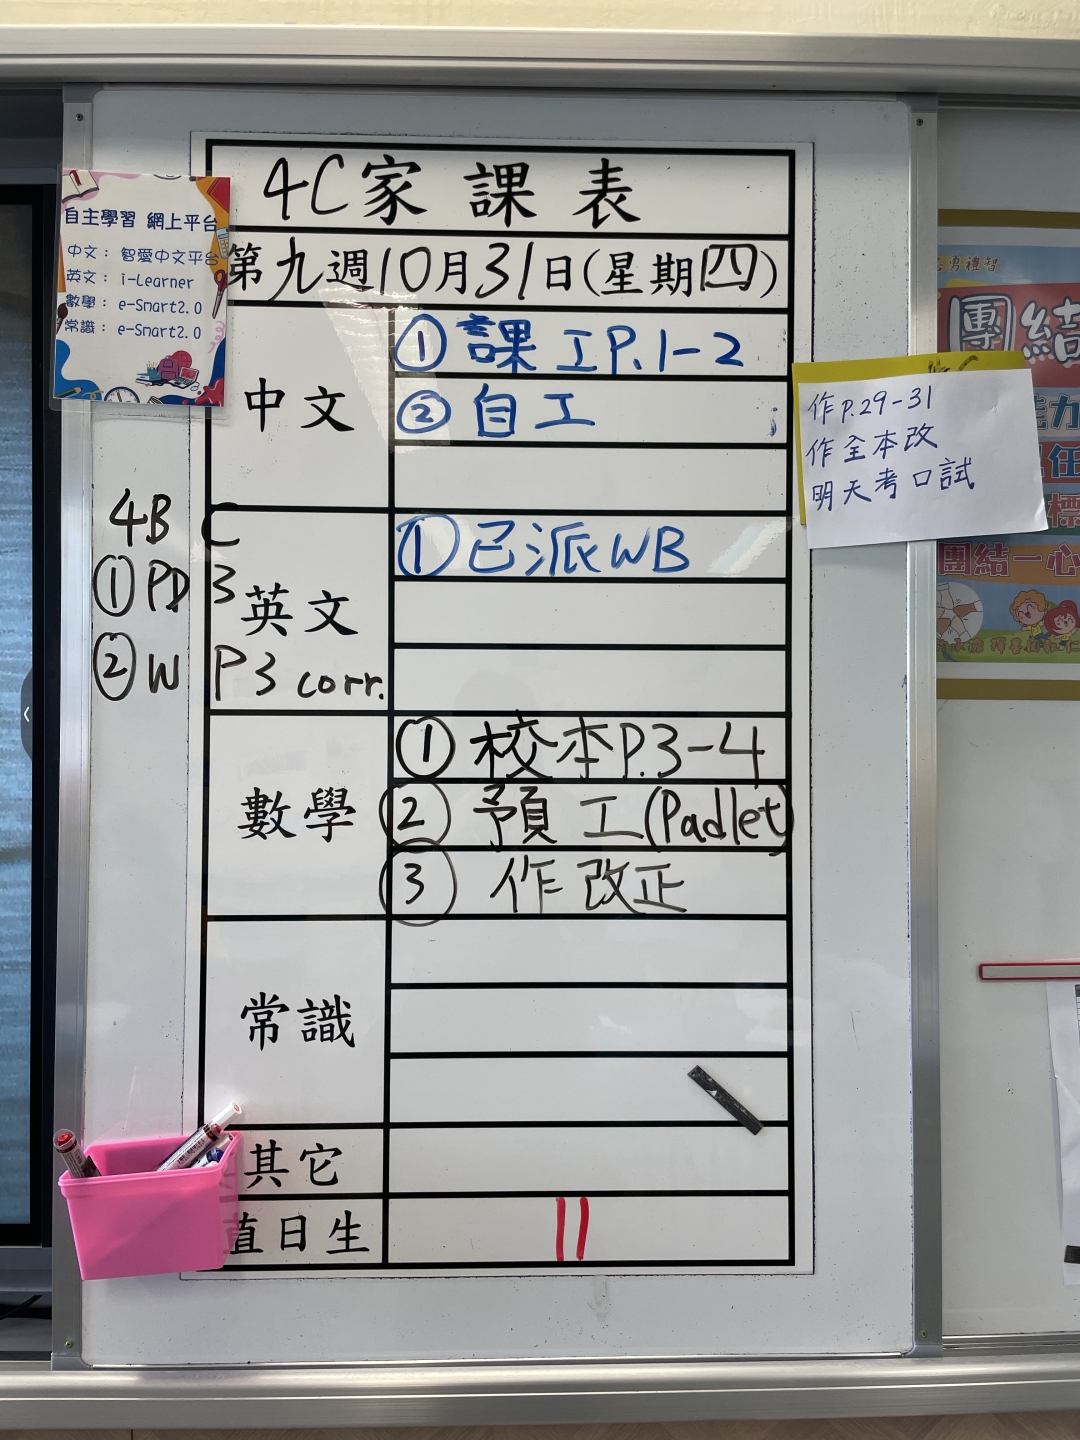 4C家課表
第九週10月31日(星期四)
自主學習 網上平台
中文： 智愛中文平台
英文： i-Learner
數學： e-Smart2.0
常識： e-Smart2.0
中文
① 課工P.1-2
② 自工
作P.29-31
作全本改
明天考口試
4B C
① PD 3
② W P3 corr.
英文
① 已派WB
數學
① 校本P.3-4
② 預工(Padlet)
③ 作改正
常識
其它
直日生
11
團結
團結一心